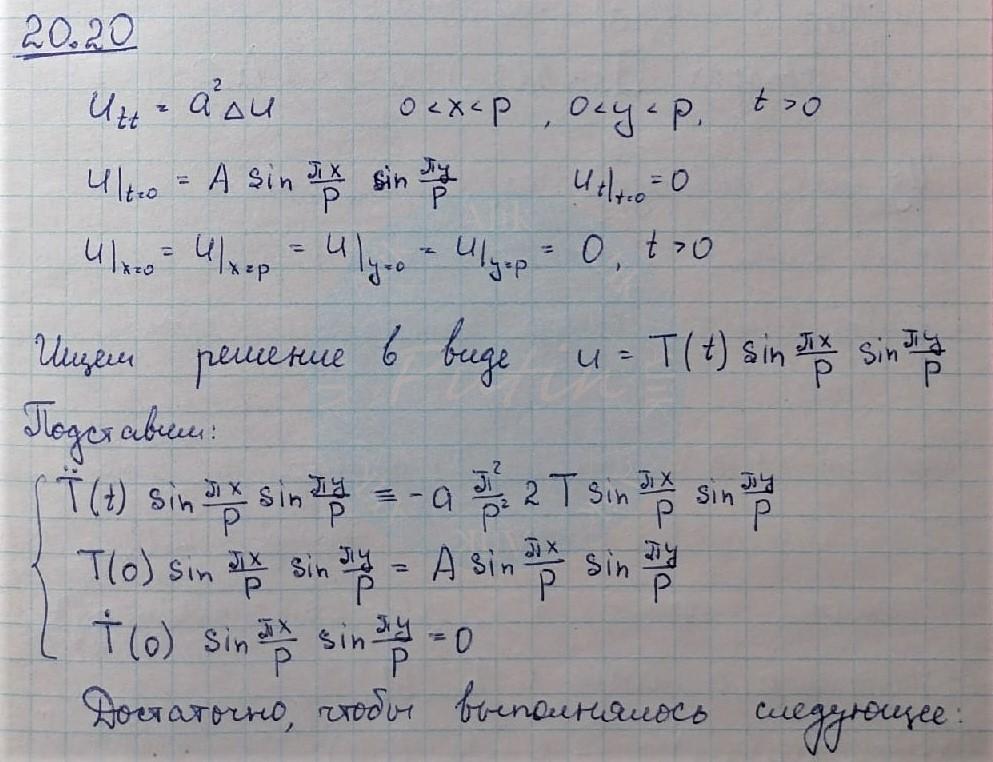 20.20
u_tt = a² Δu   0 < x < p , 0 < y < p,   t > 0
u|_{t=0} = A sin πx/p sin πy/p   u_t|_{t=0} = 0
u|_{x=0} = u|_{x=p} = u|_{y=0} = u|_{y=p} = 0, t > 0
Ищем решение в виде u = T(t) sin πx/p sin πy/p
Подставим:
T̈(t) sin πx/p sin πy/p ≡ -a π²/p² 2 T sin πx/p sin πy/p
T(0) sin πx/p sin πy/p = A sin πx/p sin πy/p
Ṫ(0) sin πx/p sin πy/p = 0
Достаточно, чтобы выполнялось следующее: